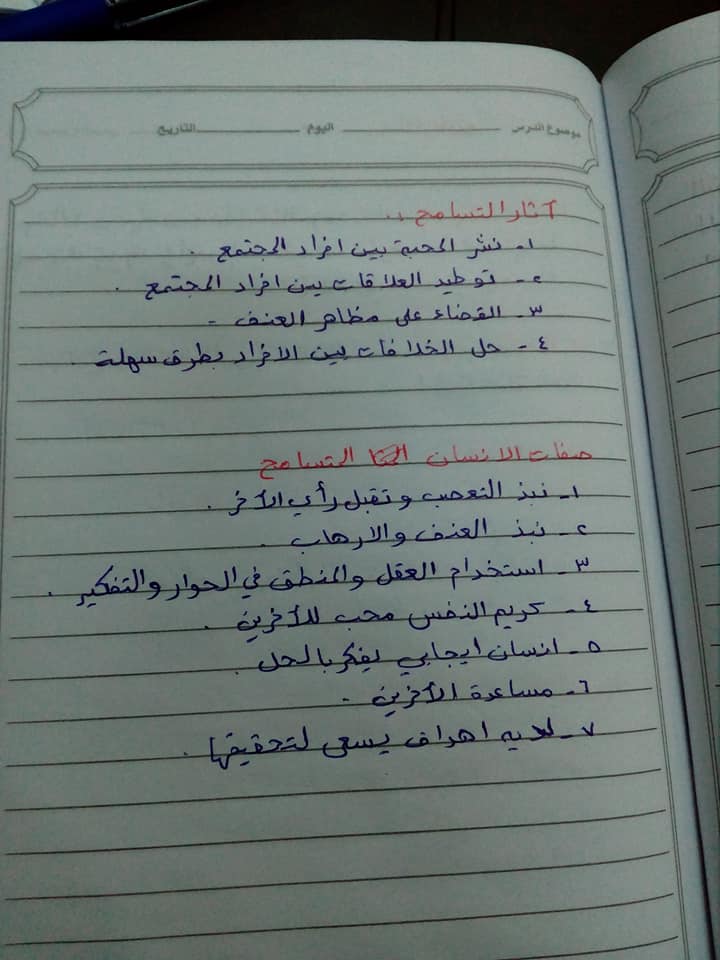 موضوع الدرس ـــــــ اليوم ـــــــ التاريخ ـــــــ
آثار التسامح :.
١- نشر المحبة بين افراد المجتمع .
٢- توطيد العلاقات بين افراد المجتمع .
٣- القضاء على مظاهر العنف .
٤- حل الخلافات بين الافراد بطرق سهلة .
صفات الانسان التسامح
١- نبذ التعصب وتقبل رأي الآخر .
٢- نبذ العنف والارهاب .
٣- استخدام العقل والمنطق في الحوار والتفكير .
٤- كريم النفس محب للآخرين .
٥- انسان ايجابي يفكر بالحل .
٦- مساعدة الآخرين .
٧- لديه اهداف يسعى لتحقيقها .